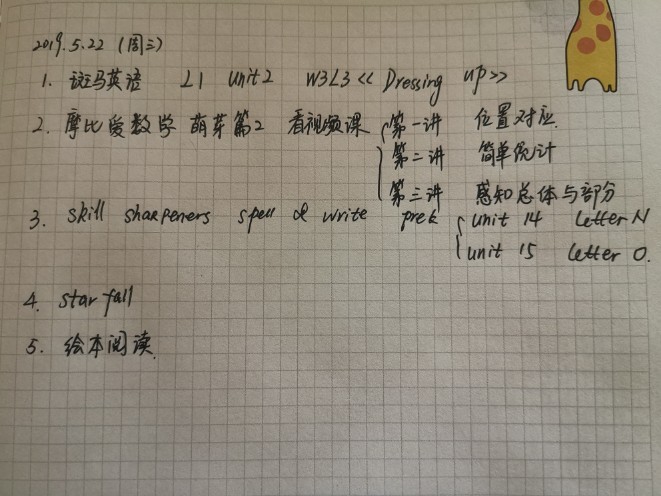 2019.5.22 (周三)
1. 斑马英语 L1 Unit2 W3L3 << Dressing up >>
2. 摩比爱数学 萌芽篇2 看视频课 第一讲 位置对应.
第二讲 简单统计
第三讲 感知总体与部分
3. skill sharpeners spell & write prek unit 14 letter N
unit 15 letter O.
4. starfall
5. 绘本阅读.